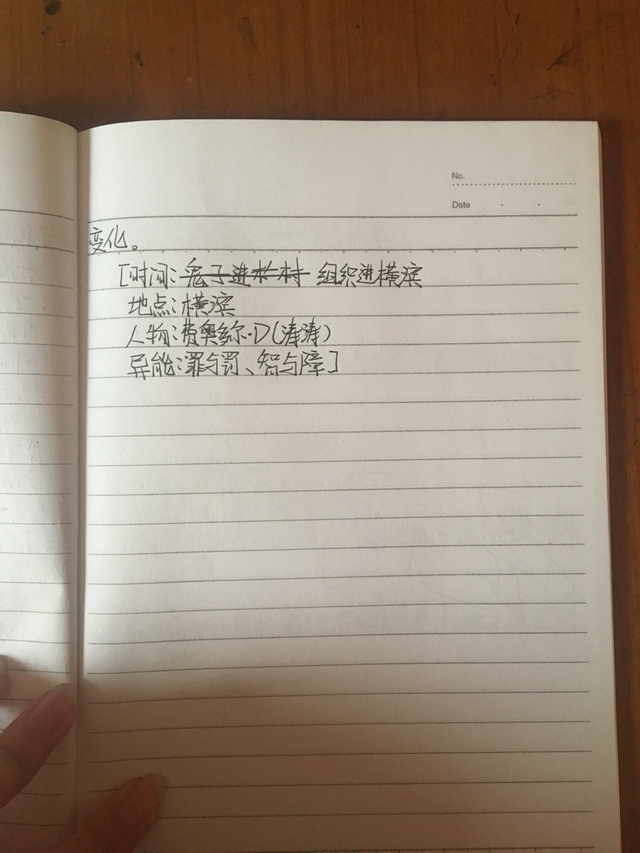 No.
Date
变化。
[时间：鬼子进村时 组织进横滨
地点：横滨
人物：费奥多尔·D(涛涛)
异能：罪与罚、智与障]